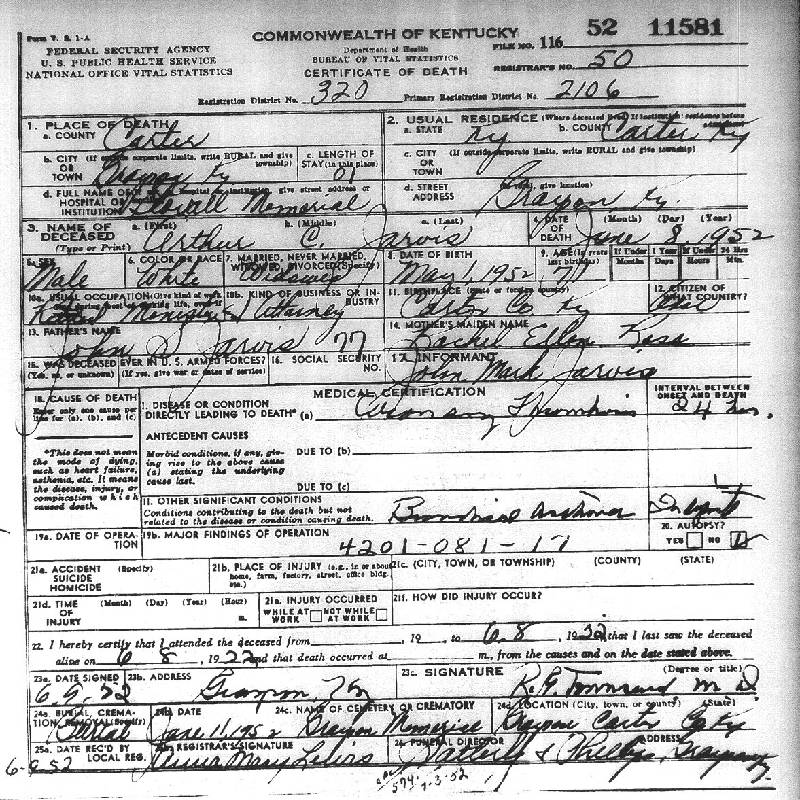 Form V. S. 1-A
COMMONWEALTH OF KENTUCKY
FILE NO. 116 52 11581
FEDERAL SECURITY AGENCY
U. S. PUBLIC HEALTH SERVICE
NATIONAL OFFICE VITAL STATISTICS
Department of Health
BUREAU OF VITAL STATISTICS
CERTIFICATE OF DEATH
REGISTRAR'S NO. 50
Registration District No. 320 Primary Registration District No. 2106
1. PLACE OF DEATH
a. COUNTY Carter
2. USUAL RESIDENCE (Where deceased lived. If institution: residence before admission)
a. STATE Ky b. COUNTY Carter Ky
b. CITY OR TOWN (If outside corporate limits, write RURAL and give township) Grayson Ky
c. LENGTH OF STAY (in this place) 01
c. CITY OR TOWN (If outside corporate limits, write RURAL and give township)
d. FULL NAME OF HOSPITAL OR INSTITUTION Stovall Memorial
d. STREET ADDRESS (If rural, give location) Grayson Ky.
3. NAME OF DECEASED (Type or Print)
a. (First) Arthur b. (Middle) C. c. (Last) Jarvis
4. DATE OF DEATH (Month) (Day) (Year) June 8, 1952
5. SEX Male
6. COLOR OR RACE White
7. MARRIED, NEVER MARRIED, WIDOWED, DIVORCED (Specify) Widower
8. DATE OF BIRTH May 1, 1952
9. AGE (In years last birthday) 77 If Under 1 Year Months Days If Under 24 Hrs Hours Min.
10a. USUAL OCCUPATION (Give kind of work done during most of working life, even if retired) Retired Minister & Attorney
10b. KIND OF BUSINESS OR INDUSTRY
11. BIRTHPLACE (State or foreign country) Carter Co Ky
12. CITIZEN OF WHAT COUNTRY?
13. FATHER'S NAME John S Jarvis 77
14. MOTHER'S MAIDEN NAME Rachel Ellen Rose
15. WAS DECEASED EVER IN U. S. ARMED FORCES? (Yes, no, or unknown) (If yes, give war or dates of service)
16. SOCIAL SECURITY NO.
17. INFORMANT John Mark Jarvis
18. CAUSE OF DEATH
Enter only one cause per line for (a), (b), and (c).
MEDICAL CERTIFICATION
INTERVAL BETWEEN ONSET AND DEATH
I. DISEASE OR CONDITION DIRECTLY LEADING TO DEATH* (a) Coronary Thrombosis 24 hrs.
*This does not mean the mode of dying, such as heart failure, asthenia, etc. It means the disease, injury, or complication which caused death.
ANTECEDENT CAUSES
Morbid conditions, if any, giving rise to the above cause (a) stating the underlying cause last.
DUE TO (b)
DUE TO (c)
II. OTHER SIGNIFICANT CONDITIONS
Conditions contributing to the death but not related to the disease or condition causing death. Bronchial Asthma
19a. DATE OF OPERATION
19b. MAJOR FINDINGS OF OPERATION
4201-081-17
20. AUTOPSY?
YES NO
21a. ACCIDENT SUICIDE HOMICIDE (Specify)
21b. PLACE OF INJURY (e.g., in or about home, farm, factory, street, office bldg. etc.)
21c. (CITY, TOWN, OR TOWNSHIP) (COUNTY) (STATE)
21d. TIME OF INJURY (Month) (Day) (Year) (Hour) m.
21e. INJURY OCCURRED
WHILE AT WORK NOT WHILE AT WORK
21f. HOW DID INJURY OCCUR?
22. I hereby certify that I attended the deceased from , 19 to 6-8, 1952 that I last saw the deceased
alive on 6 8, 1952 and that death occurred at m., from the causes and on the date stated above.
23a. DATE SIGNED 6-9-52
23b. ADDRESS Grayson, Ky
23c. SIGNATURE (Degree or title) R. G. Townsend M D
24a. BURIAL, CREMATION, REMOVAL (Specify) Burial
24b. DATE June 11, 1952
24c. NAME OF CEMETERY OR CREMATORY Grayson Memorial
24d. LOCATION (City, town, or county) (State) Grayson Carter Co Ky
25a. DATE REC'D BY LOCAL REG. 6-9-52
25b. REGISTRAR'S SIGNATURE Mary Lewis
26. FUNERAL DIRECTOR ADDRESS & Phillips, Grayson, Ky.
7-3-52